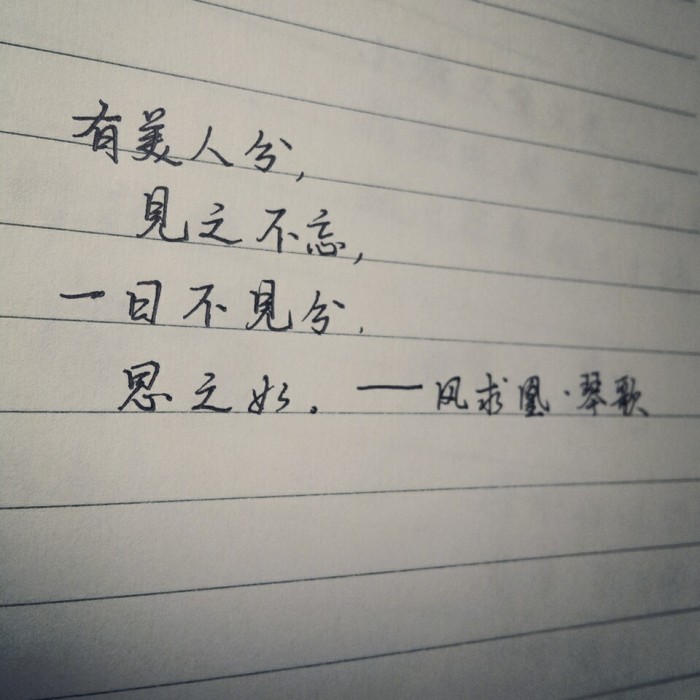 有美人兮,
見之不忘,
一日不見兮,
思之. ——凤求凰·琴歌